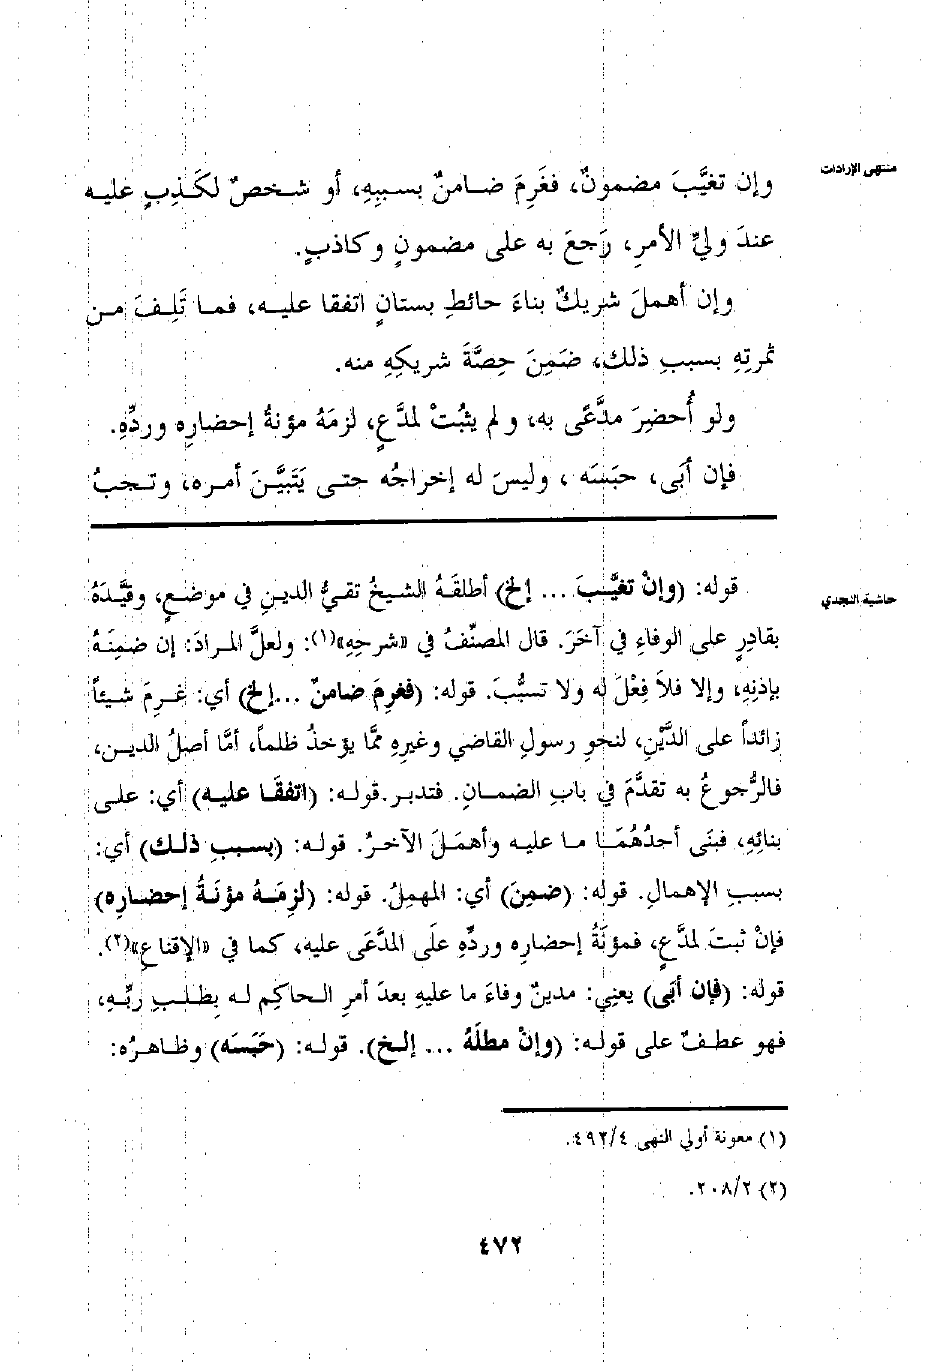 منتهى الإرادات
وإن تغيَّبَ مضمونٌ، فغَرِمَ ضامنٌ بسببِهِ، أو شخصٌ لكَذِبٍ عليه
عندَ وليِّ الأمرِ، رَجعَ به على مضمونٍ وكاذبٍ.
وإن أهملَ شريكٌ بناءَ حائطِ بستانٍ اتفقا عليه، فما تَلِفَ من
ثمرتِهِ بسببِ ذلك، ضَمِنَ حِصَّةَ شريكِهِ منه.
ولو أُحضِرَ مدَّعًى به، ولم يثبُتْ لمدَّعٍ، لزمَهُ مؤنةُ إحضارِه وردِّهِ.
فإن أبَى، حبَسَه، وليسَ له إخراجُه حتى يَتَبيَّنَ أمره، وتجبُ
حاشية النجدي
قوله: (وإنْ تغيَّبَ ... إلخ) أطلقَهُ الشيخُ تقيُّ الدينِ في موضعٍ، وقيَّدَهُ
بقادرٍ على الوفاءِ في آخَرَ. قال المصنِّفُ في «شرحِهِ»(١): ولعلَّ المرادَ: إن ضمِنَهُ
بإذنِهِ، وإلا فلاَ فِعْلَ له ولا تسبُّبَ. قوله: (فغرِمَ ضامنٌ ...إلخ) أي: غرِمَ شيئاً
زائداً على الدَّيْنِ، لنحوِ رسولِ القاضي وغيرِهِ ممَّا يؤخذُ ظلماً، أمَّا أصلُ الدينِ،
فالرُّجوعُ به تقدَّمَ في بابِ الضمانِ. فتدبر. قوله: (اتفقَا عليه) أي: على
بنائِهِ، فبنَى أحدُهُمَا ما عليه وأهمَلَ الآخرُ. قوله: (بسببِ ذلك) أي:
بسببِ الإهمالِ. قولُه: (ضمِنَ) أي: المهمِلُ. قوله: (لزِمَهُ مؤنَةُ إحضارِه)
فإنْ ثبتَ لمدَّعٍ، فمؤنَةُ إحضارِه وردِّهِ علَى المدَّعَى عليه، كما في «الإقناعِ»(٢).
قولُه: (فإن أبَى) يعنِي: مدينٌ وفاءَ ما عليهِ بعدَ أمرِ الحاكِمِ له بِطلبِ ربِّهِ،
فهو عطفٌ على قولِه: (وإنْ مطلَهُ ... إلخ). قوله: (حَبَسَه) وظاهرُه:
(١) معونة أولي النهى ٤/٤٩٢.
(٢) ٢/٢٠٨.
٤٧٢